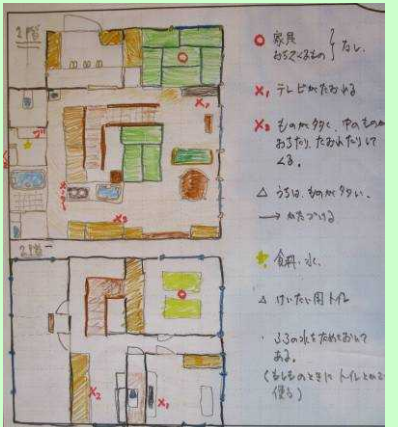 ○ 家具
おちてくるもの } なし.
X₁ テレビがたおれる
X₂ ものが多く, 中のものが
おちたり, たおれたりして
くる。
△ うちは, ものが多い.
→ かたづける
食料・水.
△ けいたい用トイレ
・ふろの水をためておいて
ある。
(もしものときに トイレとかで
使う)
X₂
X₁